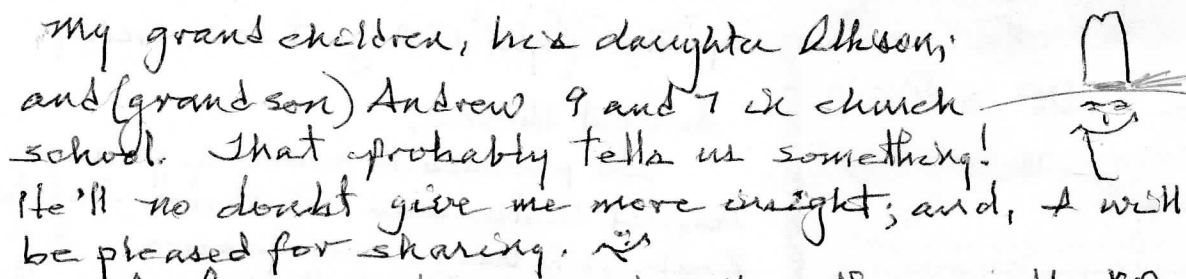 My grand children, his daughter Allison,
and (grand son) Andrew 9 and 7 in church
school. That probably tells us something!
He'll no doubt give me more insight; and, I will
be pleased for sharing.